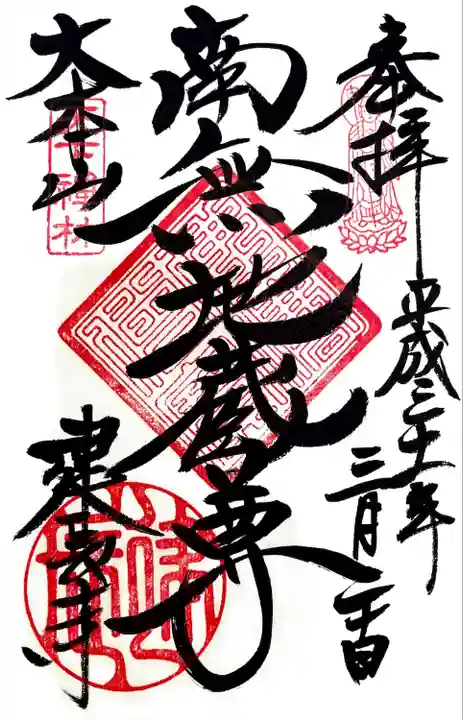 奉拝
平成三十一年
三月
南無地蔵尊
大本山
建長寺